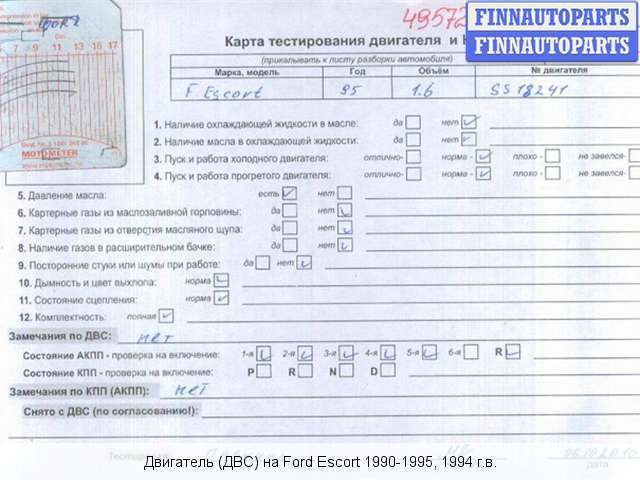 49572
FINNAUTOPARTS
FINNAUTOPARTS
Карта тестирования двигателя и
(прикалывать к листу разборки автомобиля)
Марка, модель Год Объём № двигателя
F Escort 95 1.6 SS18241
7 9 11 13 15 17
MOTOMETER
1. Наличие охлаждающей жидкости в масле: да нет
2. Наличие масла в охлаждающей жидкости: да нет
3. Пуск и работа холодного двигателя: отлично- норма - плохо - не завелся-
4. Пуск и работа прогретого двигателя: отлично- норма - плохо - не завелся-
5. Давление масла: есть нет
6. Картерные газы из маслозаливной горловины: да нет
7. Картерные газы из отверстия масляного щупа: да нет
8. Наличие газов в расширительном бачке: да нет
9. Посторонние стуки или шумы при работе: да нет
10. Дымность и цвет выхлопа: норма
11. Состояние сцепления: норма
12. Комплектность: полная
Замечания по ДВС: нет
Состояние АКПП - проверка на включение: 1-я 2-я 3-я 4-я 5-я 6-я R
Состояние КПП - проверка на включение: P R N D
Замечания по КПП (АКПП): нет
Снято с ДВС (по согласованию!):
06.10.2010
дата
Двигатель (ДВС) на Ford Escort 1990-1995, 1994 г.в.